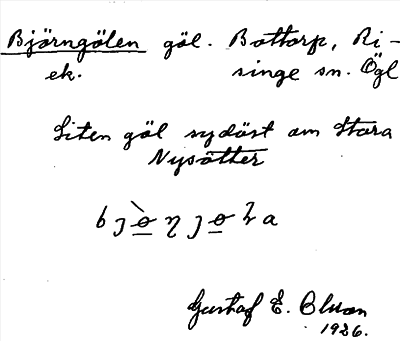 Björngölen göl. Bottorp, Ri-
ek. singe sn. Ögl
Liten göl sydöst om Stora
Nysätter
Gustaf E.
1926.